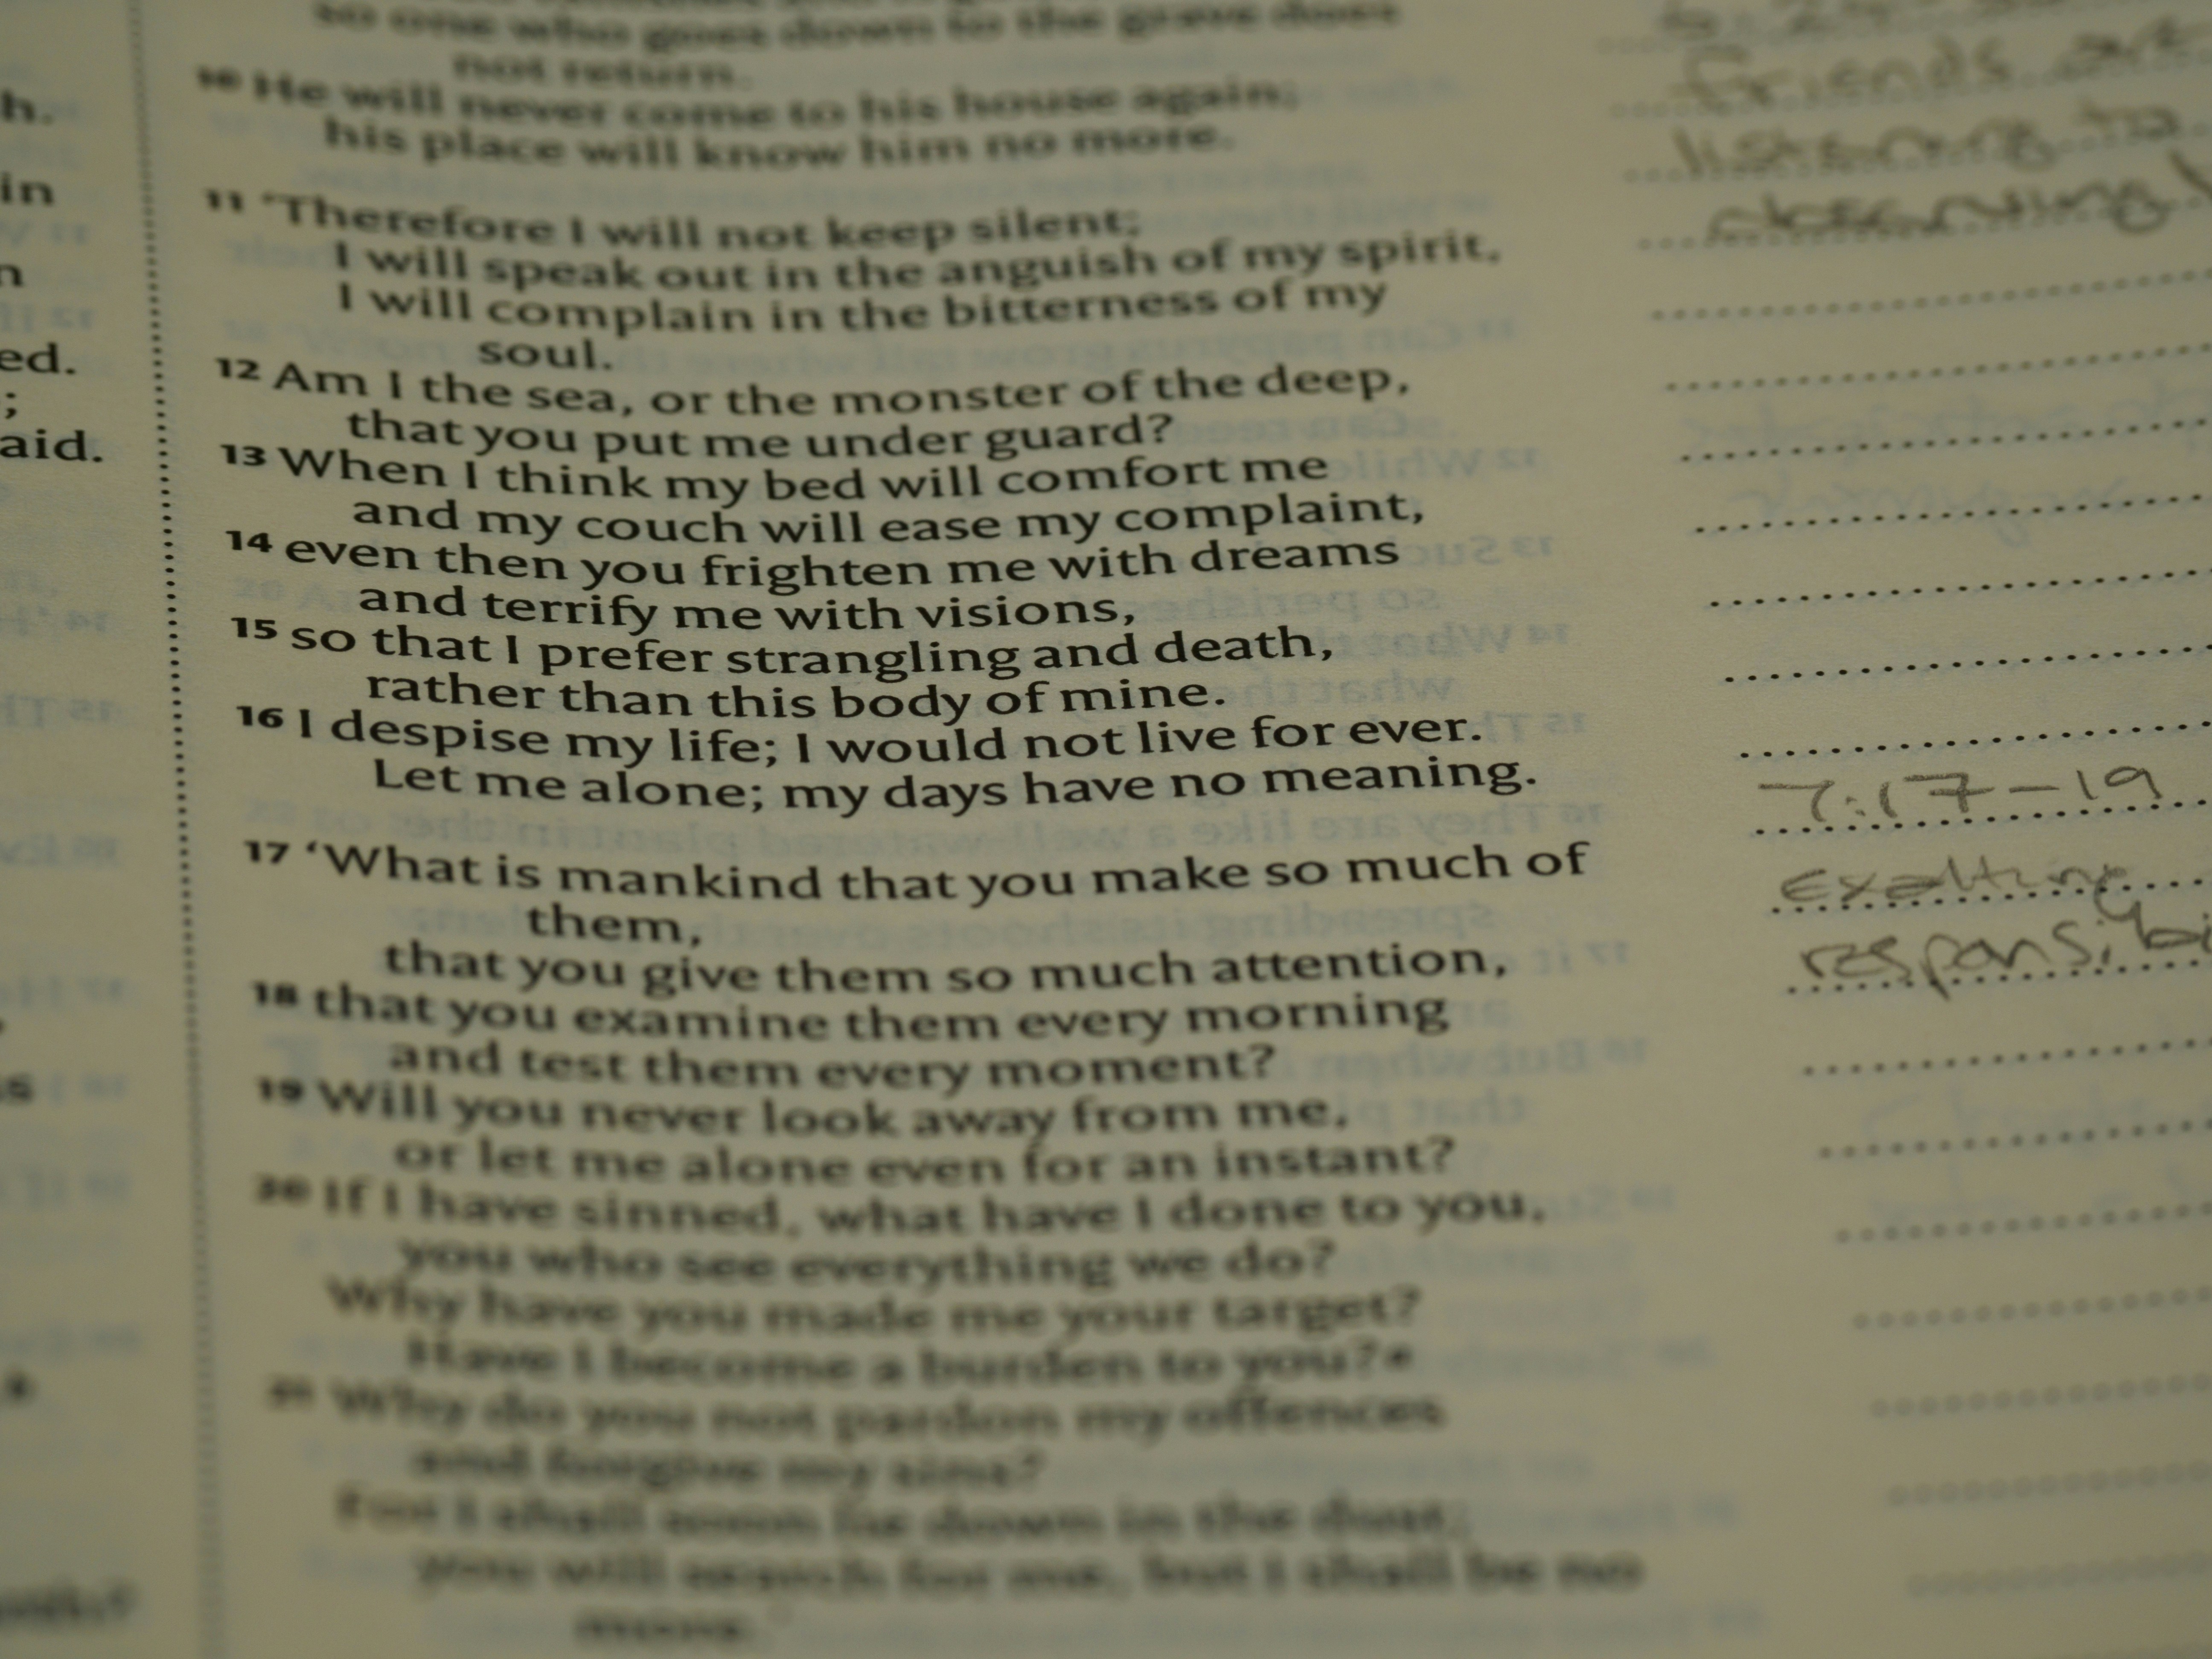 h.
in
n
ed.
;
aid.
so one who goes down to the grave does
not return.
10 He will never come to his house again;
his place will know him no more.
11 ‘Therefore I will not keep silent;
I will speak out in the anguish of my spirit,
I will complain in the bitterness of my
soul.
12 Am I the sea, or the monster of the deep,
that you put me under guard?
13 When I think my bed will comfort me
and my couch will ease my complaint,
14 even then you frighten me with dreams
and terrify me with visions,
15 so that I prefer strangling and death,
rather than this body of mine.
16 I despise my life; I would not live for ever.
Let me alone; my days have no meaning.
17 ‘What is mankind that you make so much of
them,
that you give them so much attention,
18 that you examine them every morning
and test them every moment?
19 Will you never look away from me,
or let me alone even for an instant?
20 If I have sinned, what have I done to you,
you who see everything we do?
Why have you made me your target?
Have I become a burden to you?
21 Why do you not pardon my offences
and forgive my sins?
For I shall soon lie down in the dust;
you will search for me, but I shall be no
more.
Friends
listening to
7:17-19
exalting
responsibi